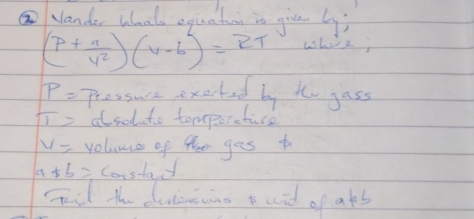 ② Vander Waals equation is given by;
(P + a/V²) (V - b) = RT where;
P = Pressure exerted by the gass
T = absolute temperature
V = volume of the gas &
a & b = Constant
Find the dimensions & unit of a & b